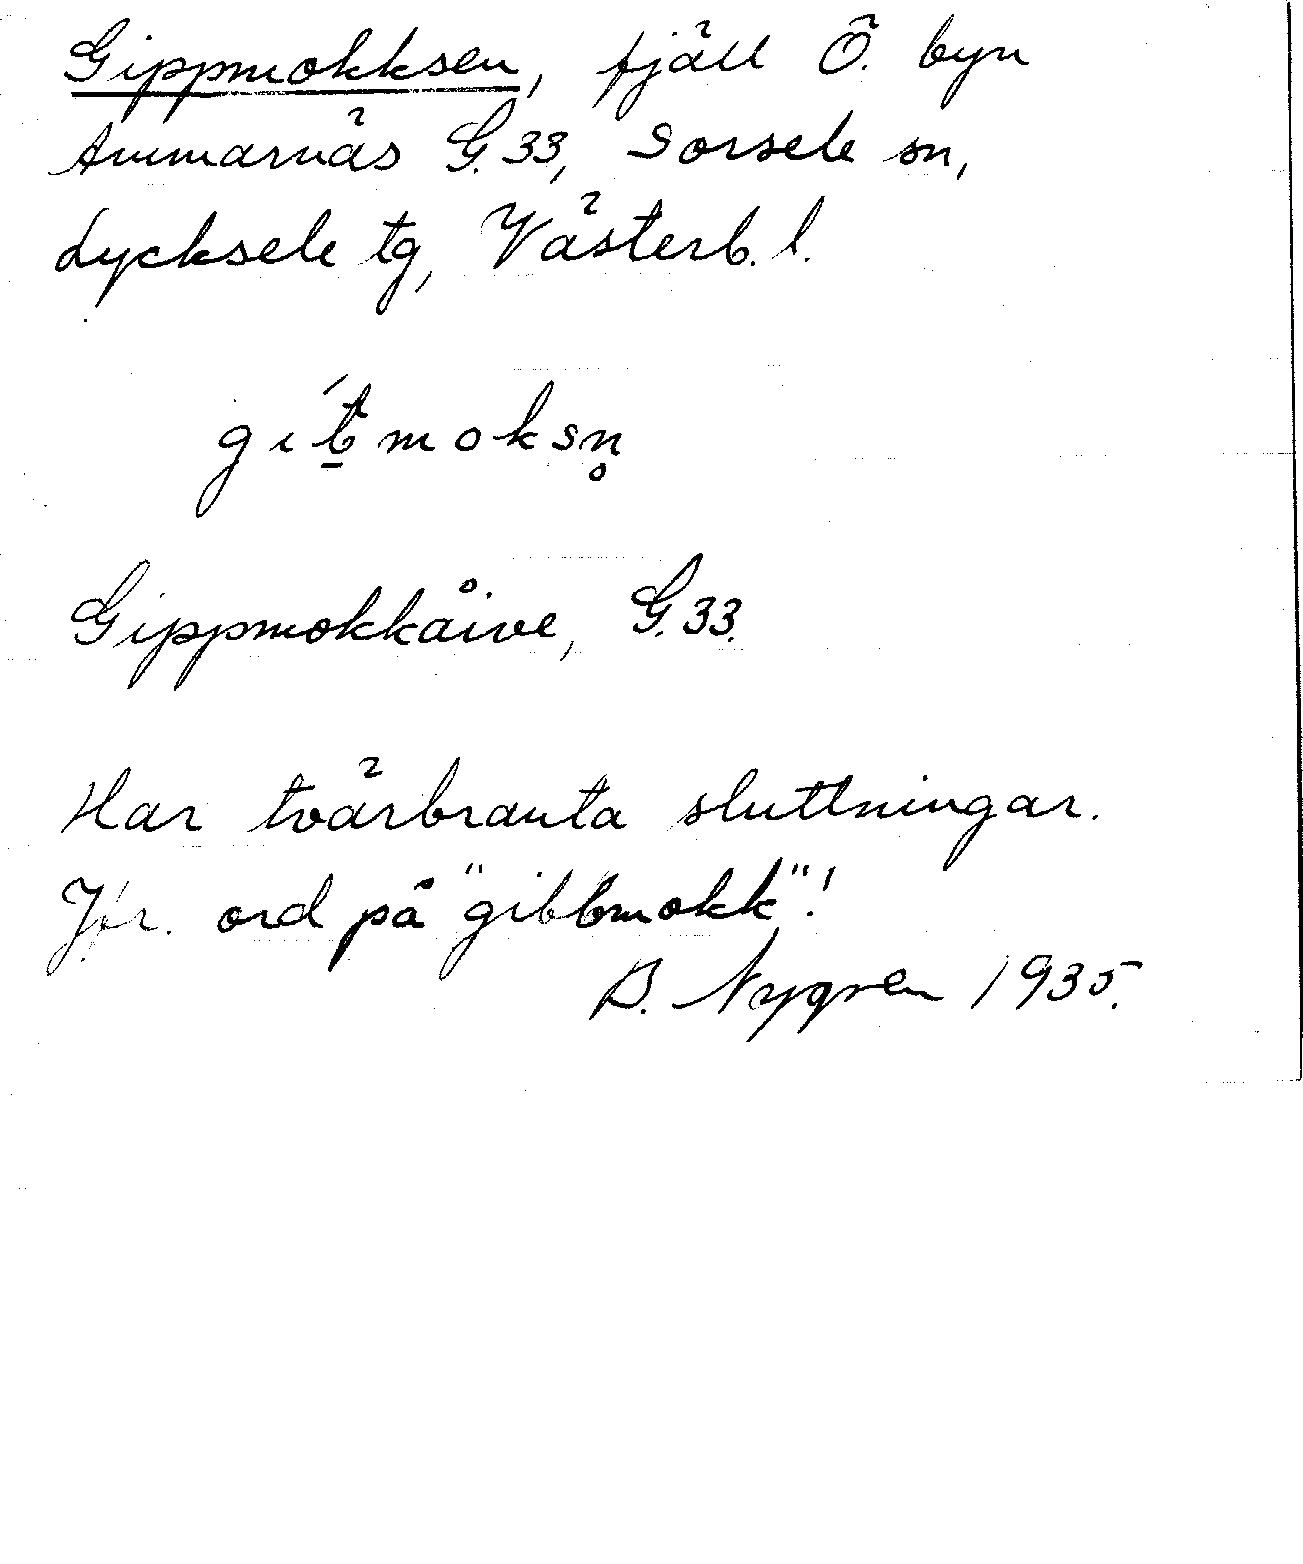 Gippmokksen, fjäll Ö. byn
Ammarnäs G.33, Sorsele sn,
Lycksele tg, Västerb. l.
Gippmokkåive, G.33.
Har tvärbranta sluttningar.
Jfr. ord på "gibbmokk"!
B. Nygren 1935.